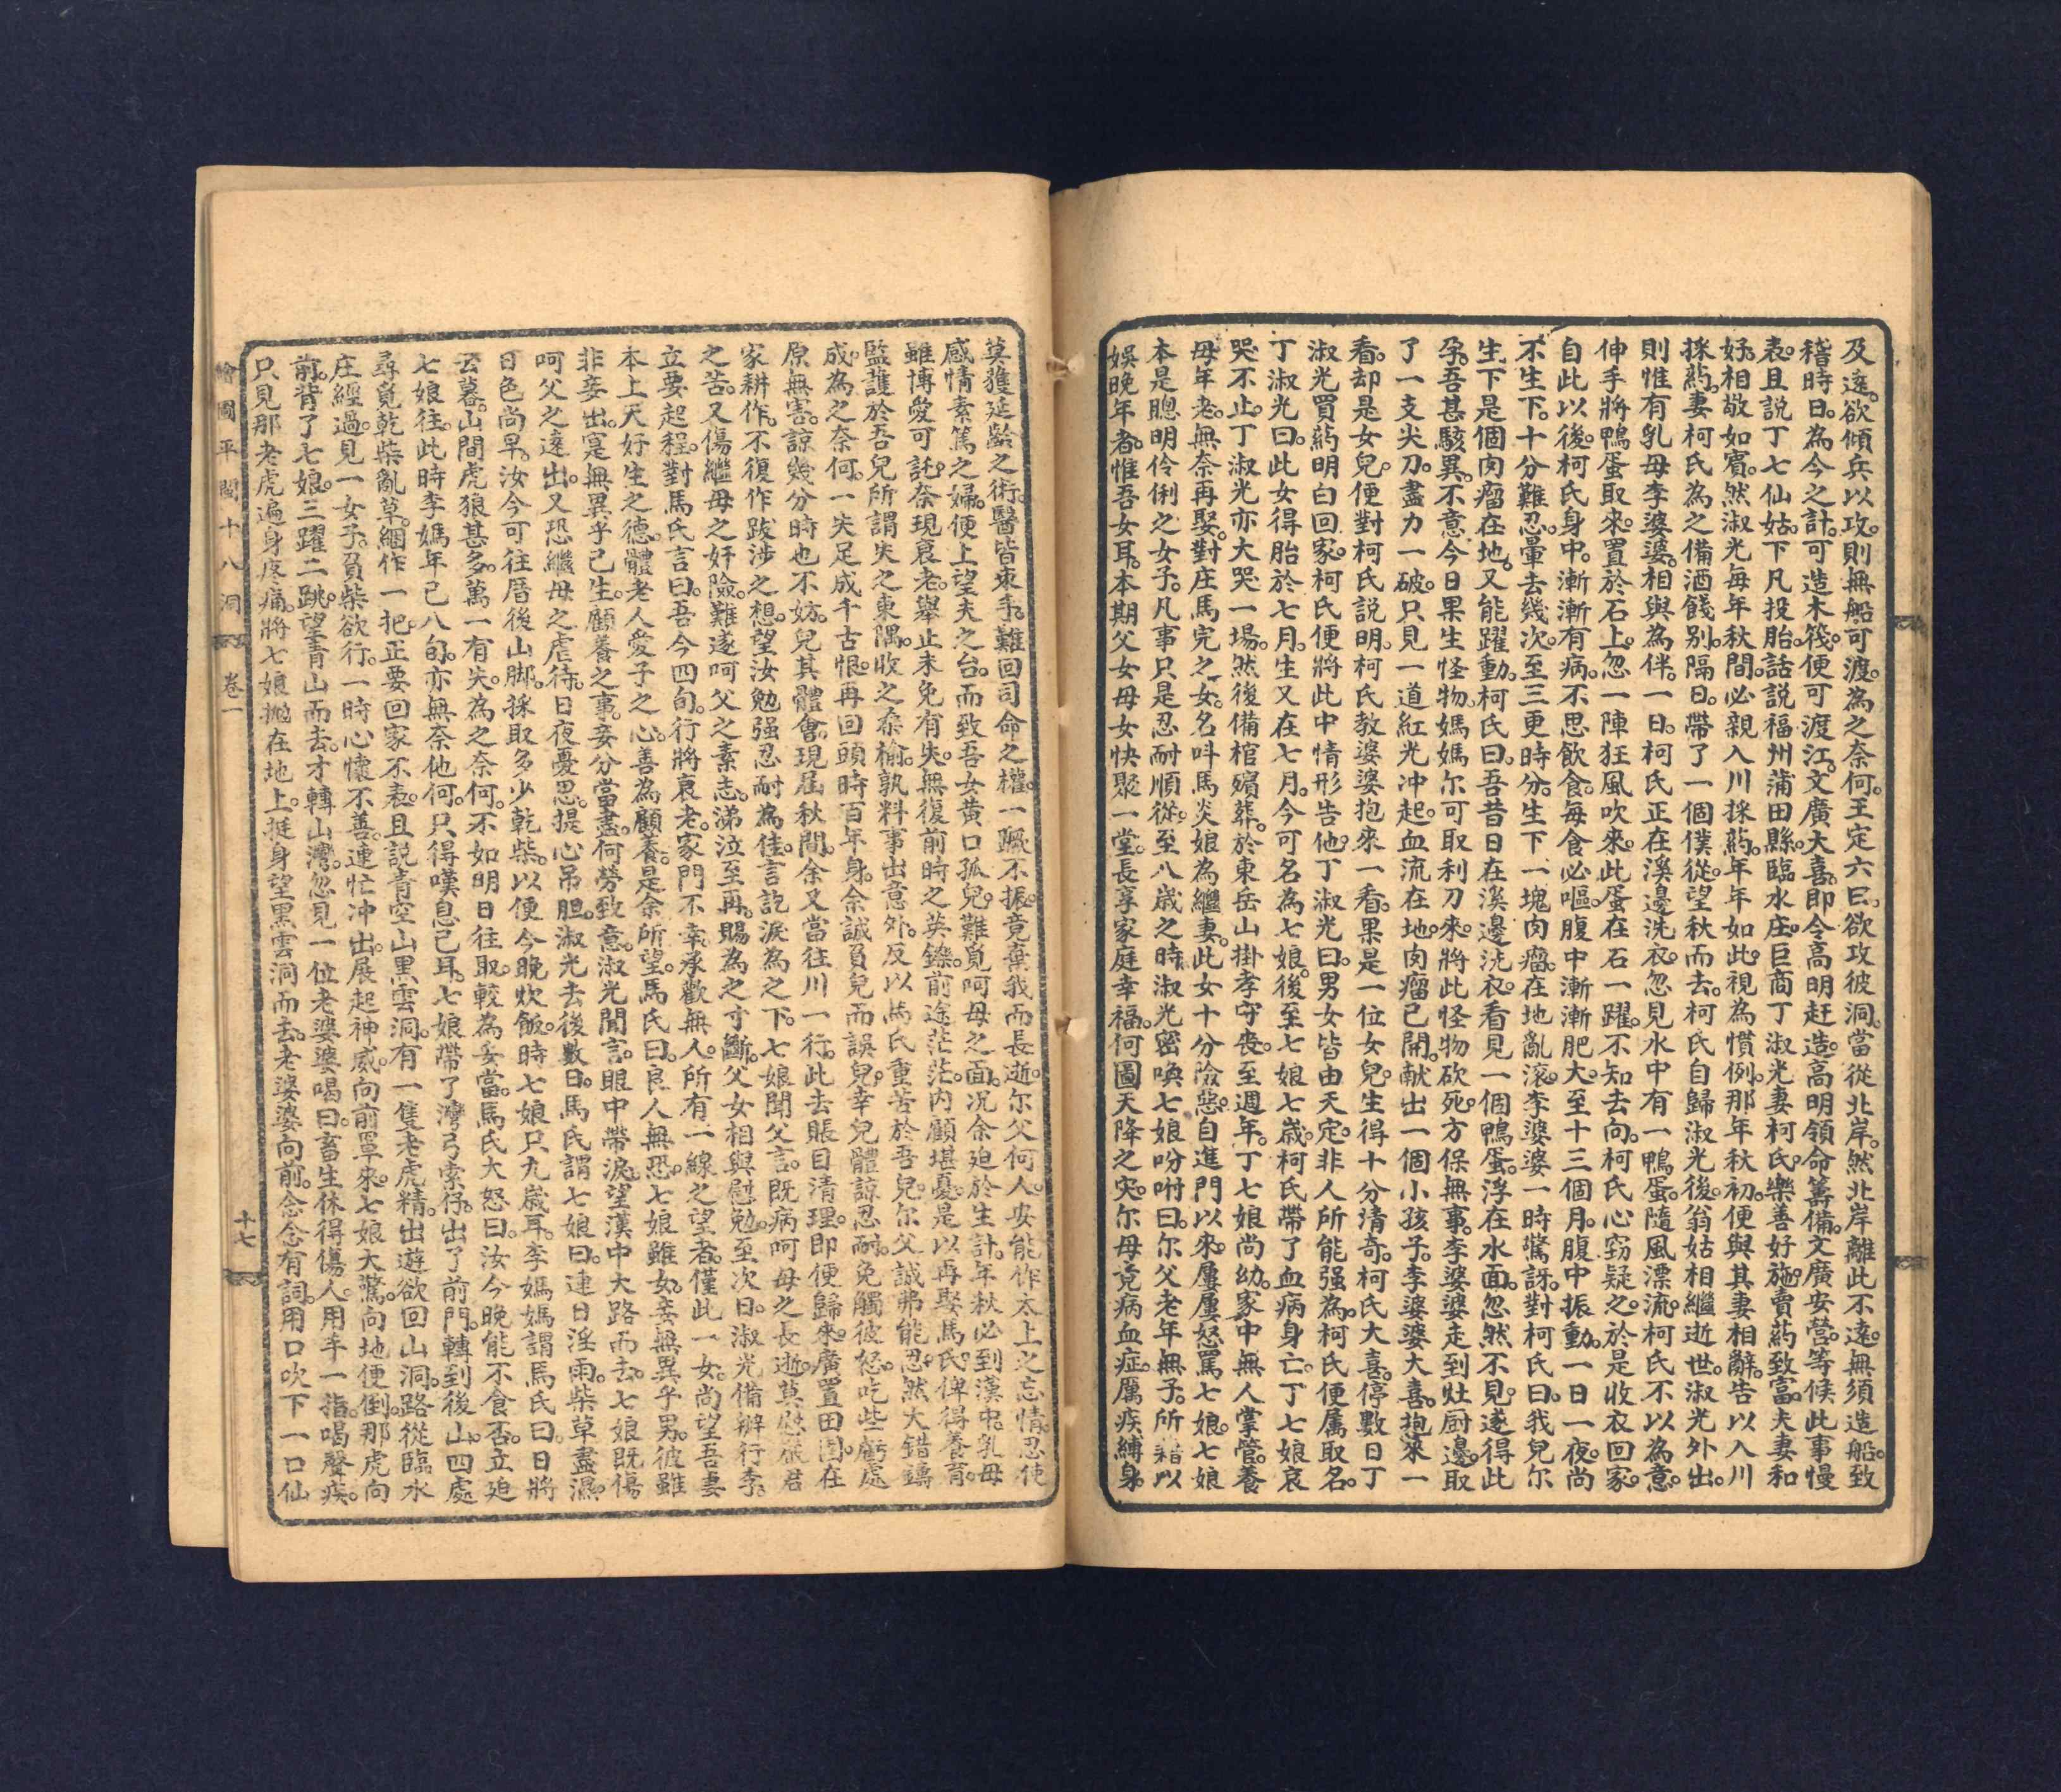 及遠。欲傾兵以攻。則無船可渡。為之奈何。王定六曰。欲攻彼洞。當從北岸。然北岸離此不遠。無須造船。致
稽時日。為今之計。可造木筏。便可渡江。文廣大喜。即令高明赶造。高明領命籌備。文廣安營。等候此事慢
表。且説丁七仙姑。下凡投胎。話説福州蒲田縣。臨水庄。巨商丁淑光。妻柯氏。樂善好施。賣葯致富。夫妻和
好。相敬如賓。然淑光每年秋間。必親入川採葯。年年如此。視為慣例。那年秋初。便與其妻相辭。告以入川
採葯。妻柯氏為之備酒餞別。隔日。帶了一個僕從。望秋而去。柯氏自歸淑光後。翁姑相繼逝世。淑光外出。
則惟有乳母李婆婆。相與為伴。一日。柯氏正在溪邊洗衣。忽見水中有一鴨蛋。隨風漂流。柯氏不以為意。
伸手將鴨蛋取來。置於石上。忽一陣狂風吹來。此蛋在石一躍。不知去向。柯氏心窃疑之。於是收衣回家。
自此以後。柯氏身中。漸漸有病。不思飲食。每食必嘔。腹中漸漸肥大。至十三個月。腹中振動。一日一夜。尚
不生下。十分難忍。暈去幾次。至三更時分。生下一塊肉瘤。在地亂滚。李婆婆一時驚訝。對柯氏曰。我兒尔
生下是個肉瘤在地。又能躍動。柯氏曰。吾昔日在溪邊洗衣。看見一個鴨蛋。浮在水面。忽然不見。遂得此
孕。吾甚駭異。不意今日果生怪物。媽媽尔可取利刀來。將此怪物砍死。方保無事。李婆婆走到灶厨邊。取
了一支尖刀。盡力一破。只見一道紅光冲起。血流在地。肉瘤已開。献出一個小孩子。李婆婆大喜。抱來一
看。却是女兒。便對柯氏説明。柯氏教婆婆抱來一看。果是一位女兒。生得十分清奇。柯氏大喜。停數日丁
淑光買葯明白回家。柯氏便將此中情形告他。丁淑光曰。男女皆由天定。非人所能强為。柯氏便属取名。
丁淑光曰。此女得胎於七月。生又在七月。今可名為七娘。後至七娘七歲。柯氏帶了血病身亡。丁七娘哀
哭不止。丁淑光亦大哭一場。然後備棺殯葬。於東岳山掛孝守喪。至週年。丁七娘尚幼。家中無人掌管。養
母年老。無奈再娶。對庄馬完之女。名呌馬炎娘為繼妻。此女十分險惡。自進門以來。屢屢怒罵七娘。七娘
本是聰明伶俐之女子。凡事只是忍耐順從。至八歲之時。淑光密喚七娘吩咐曰。尔父老年無子。所藉以
娛晚年者。惟吾女耳。本期父女母女快聚一堂。長享家庭幸福。何圖天降之灾。尔母竟病血症。厲疾縛身。
莫獲延齡之術。醫皆束手。難回司命之權。一蹶不振。竟棄我而長逝。尔父何人。安能作太上之忘情。忍使
感情素篤之婦。便上望夫之台。而致吾女黄口孤兒。難覓呵母之面。况余廹於生計。年秋必到漢中。乳母
雖博愛可託。奈現衰老。舉止未免有失。無復前時之英鑠。前途茫茫。内顧堪憂。是以再娶馬氏。俾得養育。
監護於吾兒。所謂失之東隅。收之桑榆。孰料事出意外。反以馬氏重苦於吾兒。尔父誠弗能忍。然大錯鑄
成。為之奈何。一失足成千古恨。再回頭時百年身。余誠負兒而誤兒。幸兒體諒忍耐。免觸彼怒。吃些虧處
原無害。諒幾分時也不妨。兒其體會。現屆秋間。余又當往川一行。此去賬目清理。即便歸來。廣置田園。在
家耕作。不復作跋涉之想。望汝勉强忍耐為佳。言訖淚為之下。七娘聞父言。既病呵母之長逝。莫慰嚴君
之苦。又傷繼母之奸險。難遂呵父之素志。涕泣至再。賜為之寸斷。父女相與慰勉。至次日。淑光備辦行李。
立要起程。對馬氏言曰。吾今四旬。行將衰老。家門不幸承歡無人。所有一線之望者。僅此一女。尚望吾妻
本上天好生之德。體老人愛子之心。善為顧養。是余所望。馬氏曰。良人無恐。七娘雖女。妾無異乎男。彼雖
非妾出。寔無異乎己生。顧養之事。妾分當盡。何勞致意。淑光聞言。眼中帶淚。望漢中大路而去。七娘既傷
呵父之遠出。又恐繼母之虐待。日夜憂思。提心吊胆。淑光去後數日。馬氏謂七娘曰。連日淫雨。柴草盡濕。
日色尚早。汝今可往厝後山脚。採取多少乾柴。以便今晚炊飯。時七娘只九歲耳。李媽媽謂馬氏曰。日將
云暮。山間虎狼甚多。萬一有失。為之奈何。不如明日往取。較為妥當。馬氏大怒曰。汝今晚能不食否。立廹
七娘往。此時李媽年已八旬。亦無奈他何。只得嘆息已耳。七娘帶了灣弓索仔。出了前門。轉到後山。四處
尋覓乾柴亂草。綑作一把。正要回家不表。且説青空山黑雲洞。有一隻老虎精。出遊欲回山洞。路從臨水
庄經過。見一女子。負柴欲行。一時心懷不善。連忙冲出。展起神威。向前罩來。七娘大驚。向地便倒。那虎向
前。背了七娘。三躍二跳。望青山而去。才轉山灣。忽見一位老婆婆喝曰。畜生休得傷人。用手一指。喝聲疾。
只見那老虎遍身疼痛。將七娘抛在地上。挺身望黑雲洞而去。老婆婆向前。念念有詞。用口吹下一口仙
繪圖平閩十八洞 卷一 十七